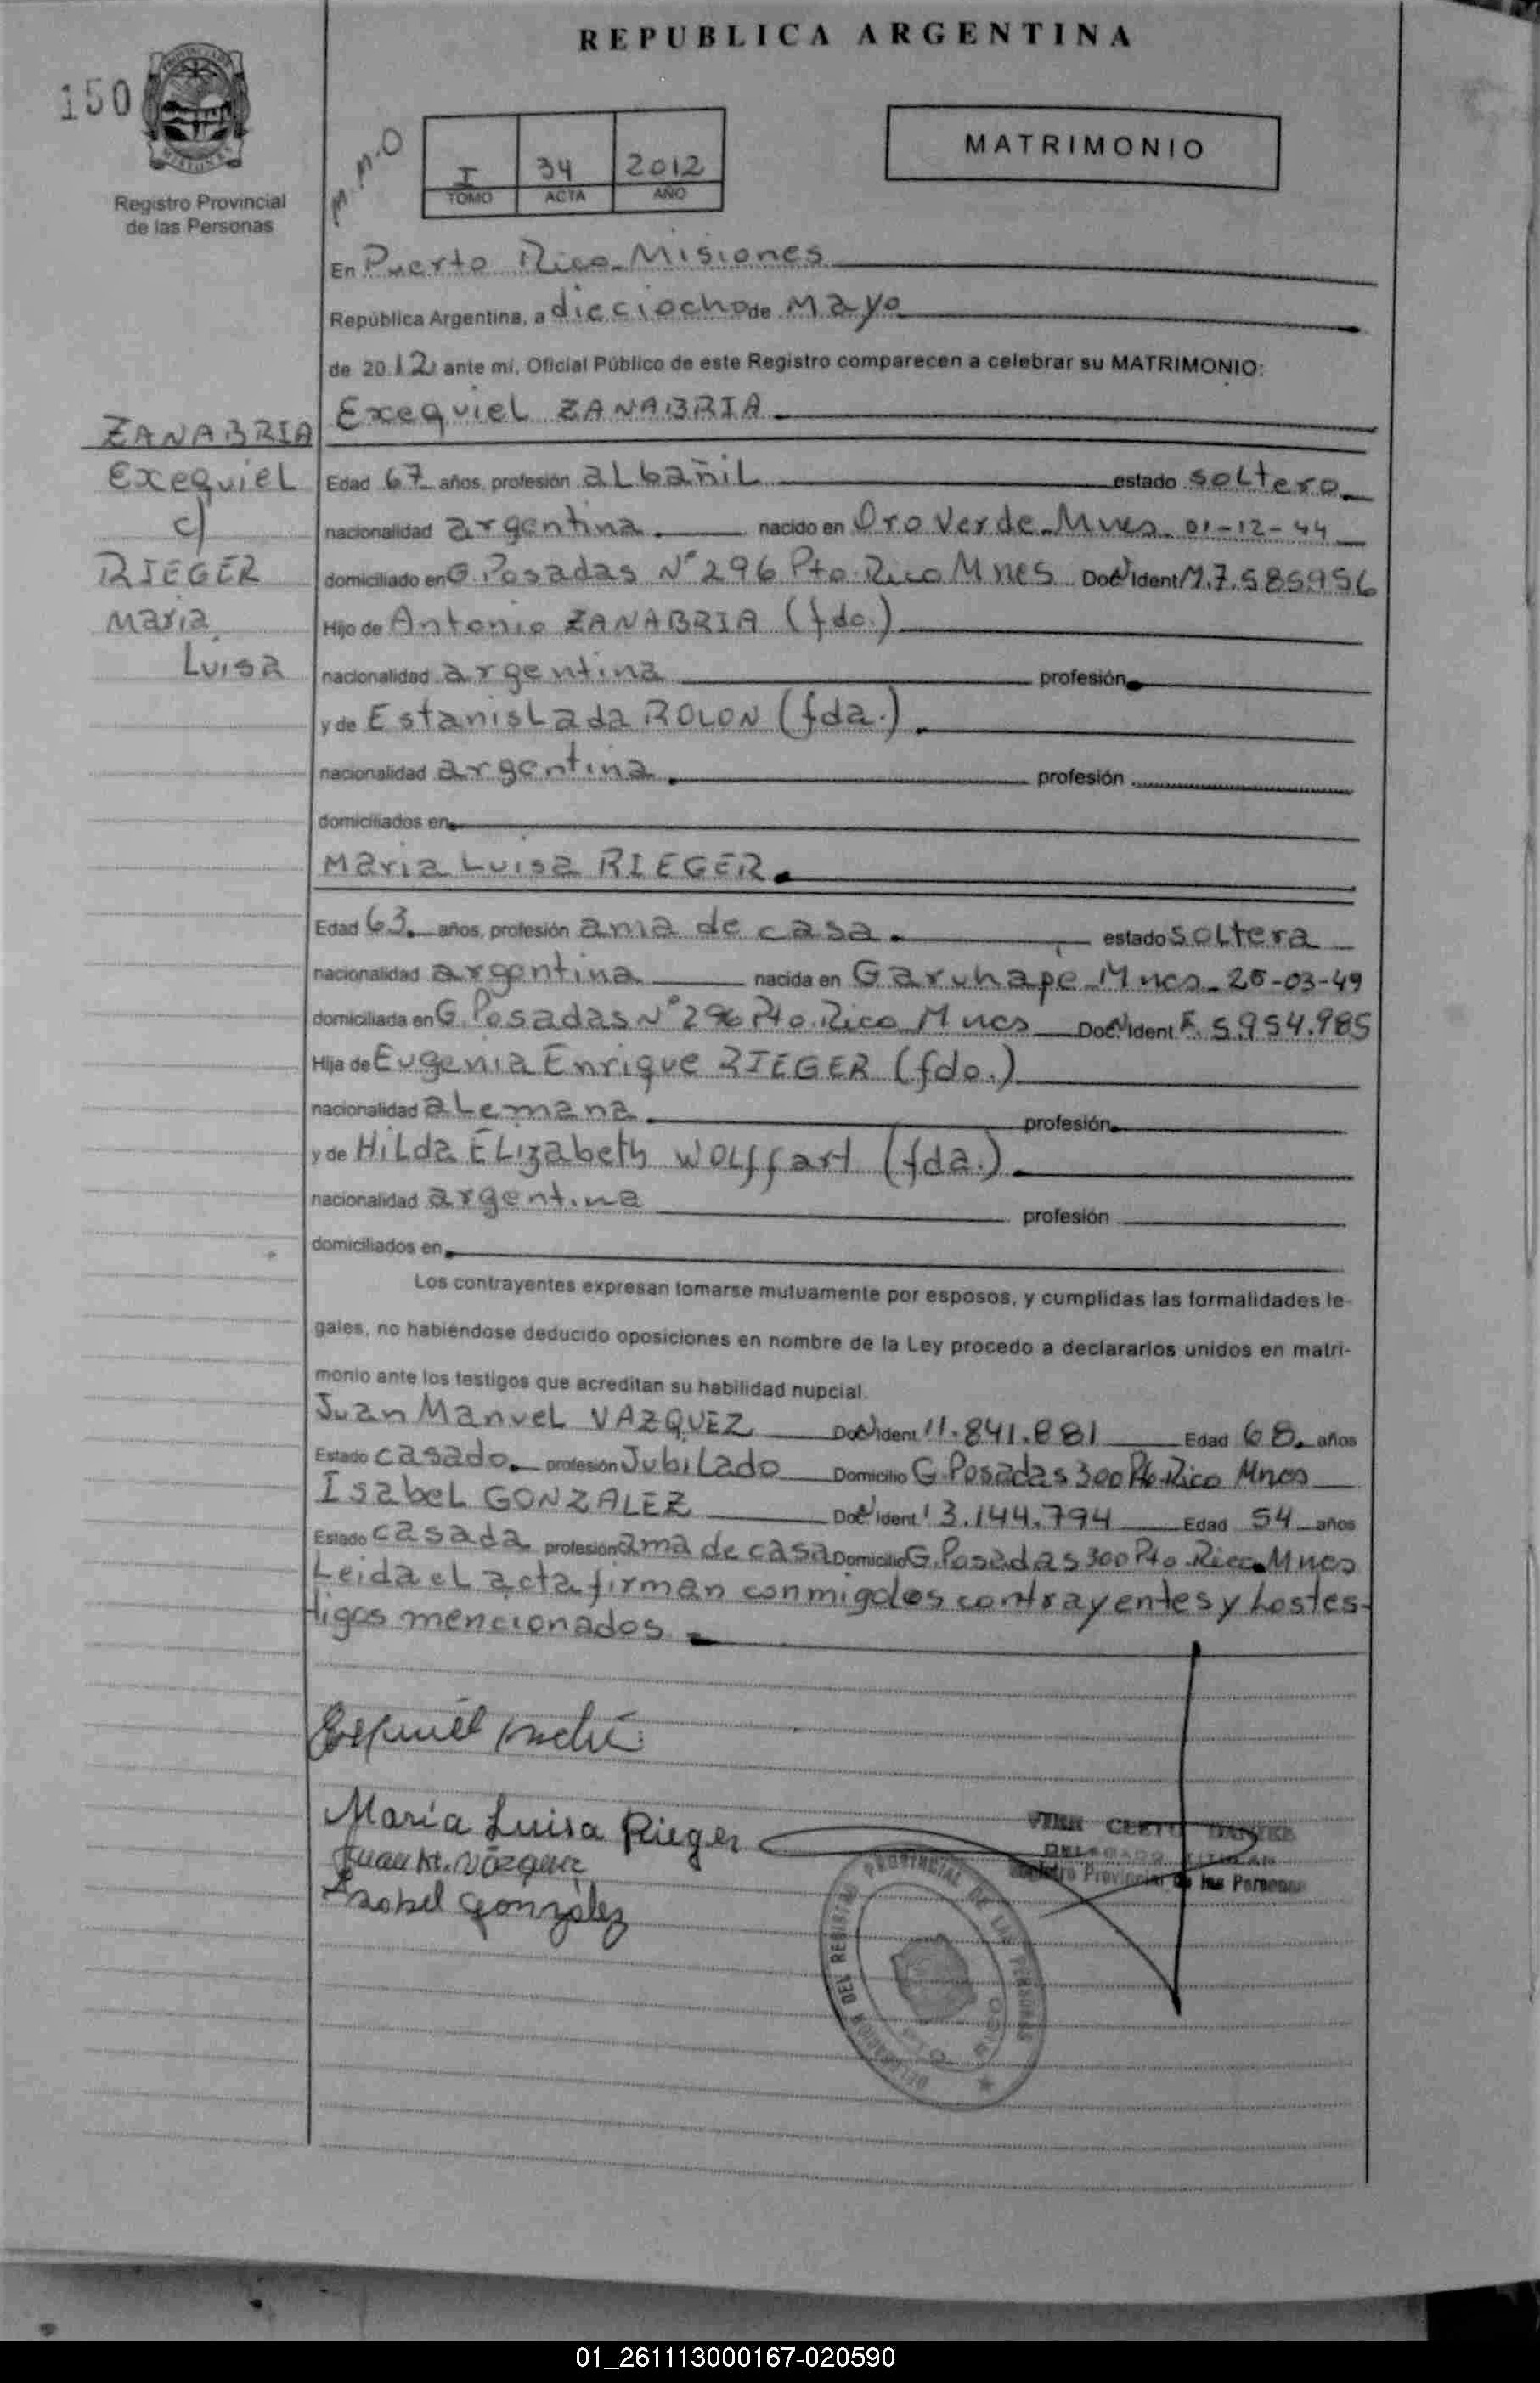 REPUBLICA ARGENTINA
150
PROVINCIA DE
MISIONES
Registro Provincial
de las Personas
M.M.O
I 34 2012
TOMO ACTA AÑO
MATRIMONIO
En Puerto Rico Misiones
República Argentina, a dieciocho de Mayo
de 2012 ante mí, Oficial Público de este Registro comparecen a celebrar su MATRIMONIO:
Exequiel ZANABRIA
ZANABRIA
Exequiel
c/
RIEGER
Maria
Luisa
Edad 67 años, profesión albañil estado soltero
nacionalidad argentina nacido en Oro Verde Mnes 01-12-44
domiciliado en G. Posadas N° 296 Pto. Rico Mnes Doc N° Ident M.7.585.956
Hijo de Antonio ZANABRIA (fdo.)
nacionalidad argentina profesión
y de Estanislada ROLON (fda.)
nacionalidad argentina profesión
domiciliados en
Maria Luisa RIEGER
Edad 63 años, profesión ama de casa estado soltera
nacionalidad argentina nacida en Garuhapé Mnes 25-03-49
domiciliada en G. Posadas N° 296 Pto. Rico Mnes Doc N° Ident F. 5.954.985
Hija de Eugenia Enrique RIEGER (fdo.)
nacionalidad alemana profesión
y de Hilda Elizabeth Wolffart (fda.)
nacionalidad argentina profesión
domiciliados en
Los contrayentes expresan tomarse mutuamente por esposos, y cumplidas las formalidades le-
gales, no habiéndose deducido oposiciones en nombre de la Ley procedo a declararlos unidos en matri-
monio ante los testigos que acreditan su habilidad nupcial.
Juan Manuel VAZQUEZ Doc N° Ident 11.841.881 Edad 68 años
Estado casado profesión Jubilado Domicilio G. Posadas 300 Pto. Rico Mnes
Isabel GONZALEZ Doc N° Ident 13.144.794 Edad 54 años
Estado casada profesión ama de casa Domicilio G. Posadas 300 Pto. Rico Mnes
Leida el acta firman conmigo los contrayentes y los tes-
tigos mencionados
Maria Luisa Rieger
Juan M. Vázquez
Isabel González
VERA CLETO
DELEGADO TITULAR
Registro Provincial de las Personas
DELEGACION DEL REGISTRO PROVINCIAL DE LAS PERSONAS
01_261113000167-020590